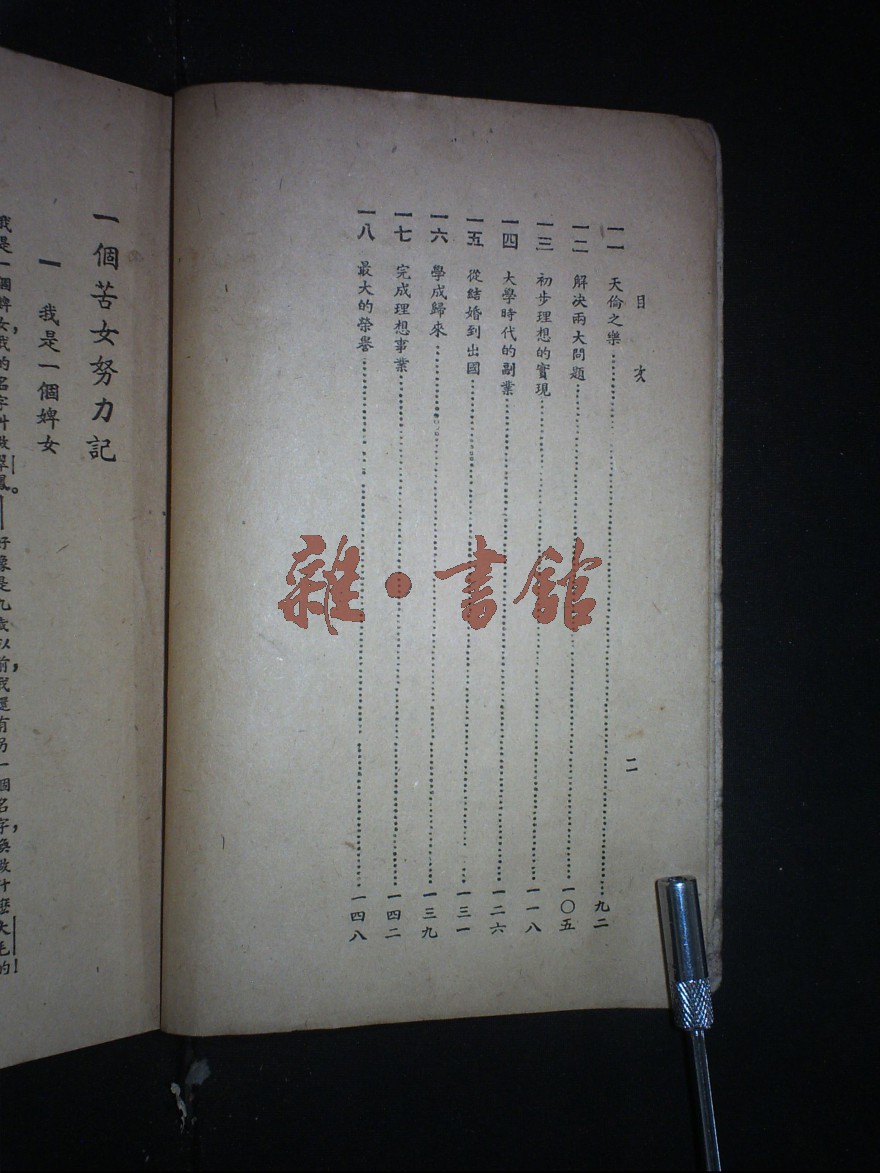 目次
二
一一 天倫之樂……九二
一二 解决兩大問題……一〇五
一三 初步理想的實現……一一八
一四 大學時代的副業……一二六
一五 從結婚到出國……一三一
一六 學成歸來……一三九
一七 完成理想事業……一四二
一八 最大的榮譽……一四八
一個苦女努力記
一 我是一個婢女
我是一個婢女，我的名字叫做翠鳳。好像是九歲以前，我還有另一個名字，喚做什麼大毛的！
雜·書館